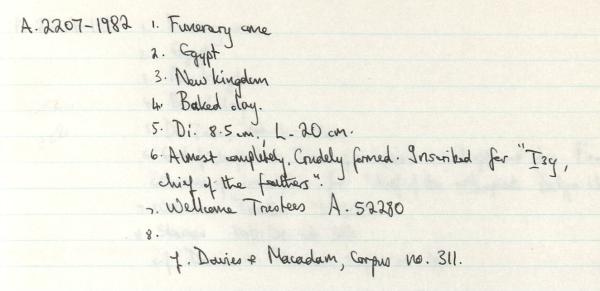 A.2207-1982 1. Funerary cone
2. Egypt
3. New Kingdom
4. Baked clay.
5. Di. 8.5 cm; L - 20 cm.
6. Almost completely. Crudely formed. Inscribed for "T3y,
chief of the feathers".
7. Wellcome Trustees A. 52280
8.
cf. Davies & Macadam, Corpus no. 311.